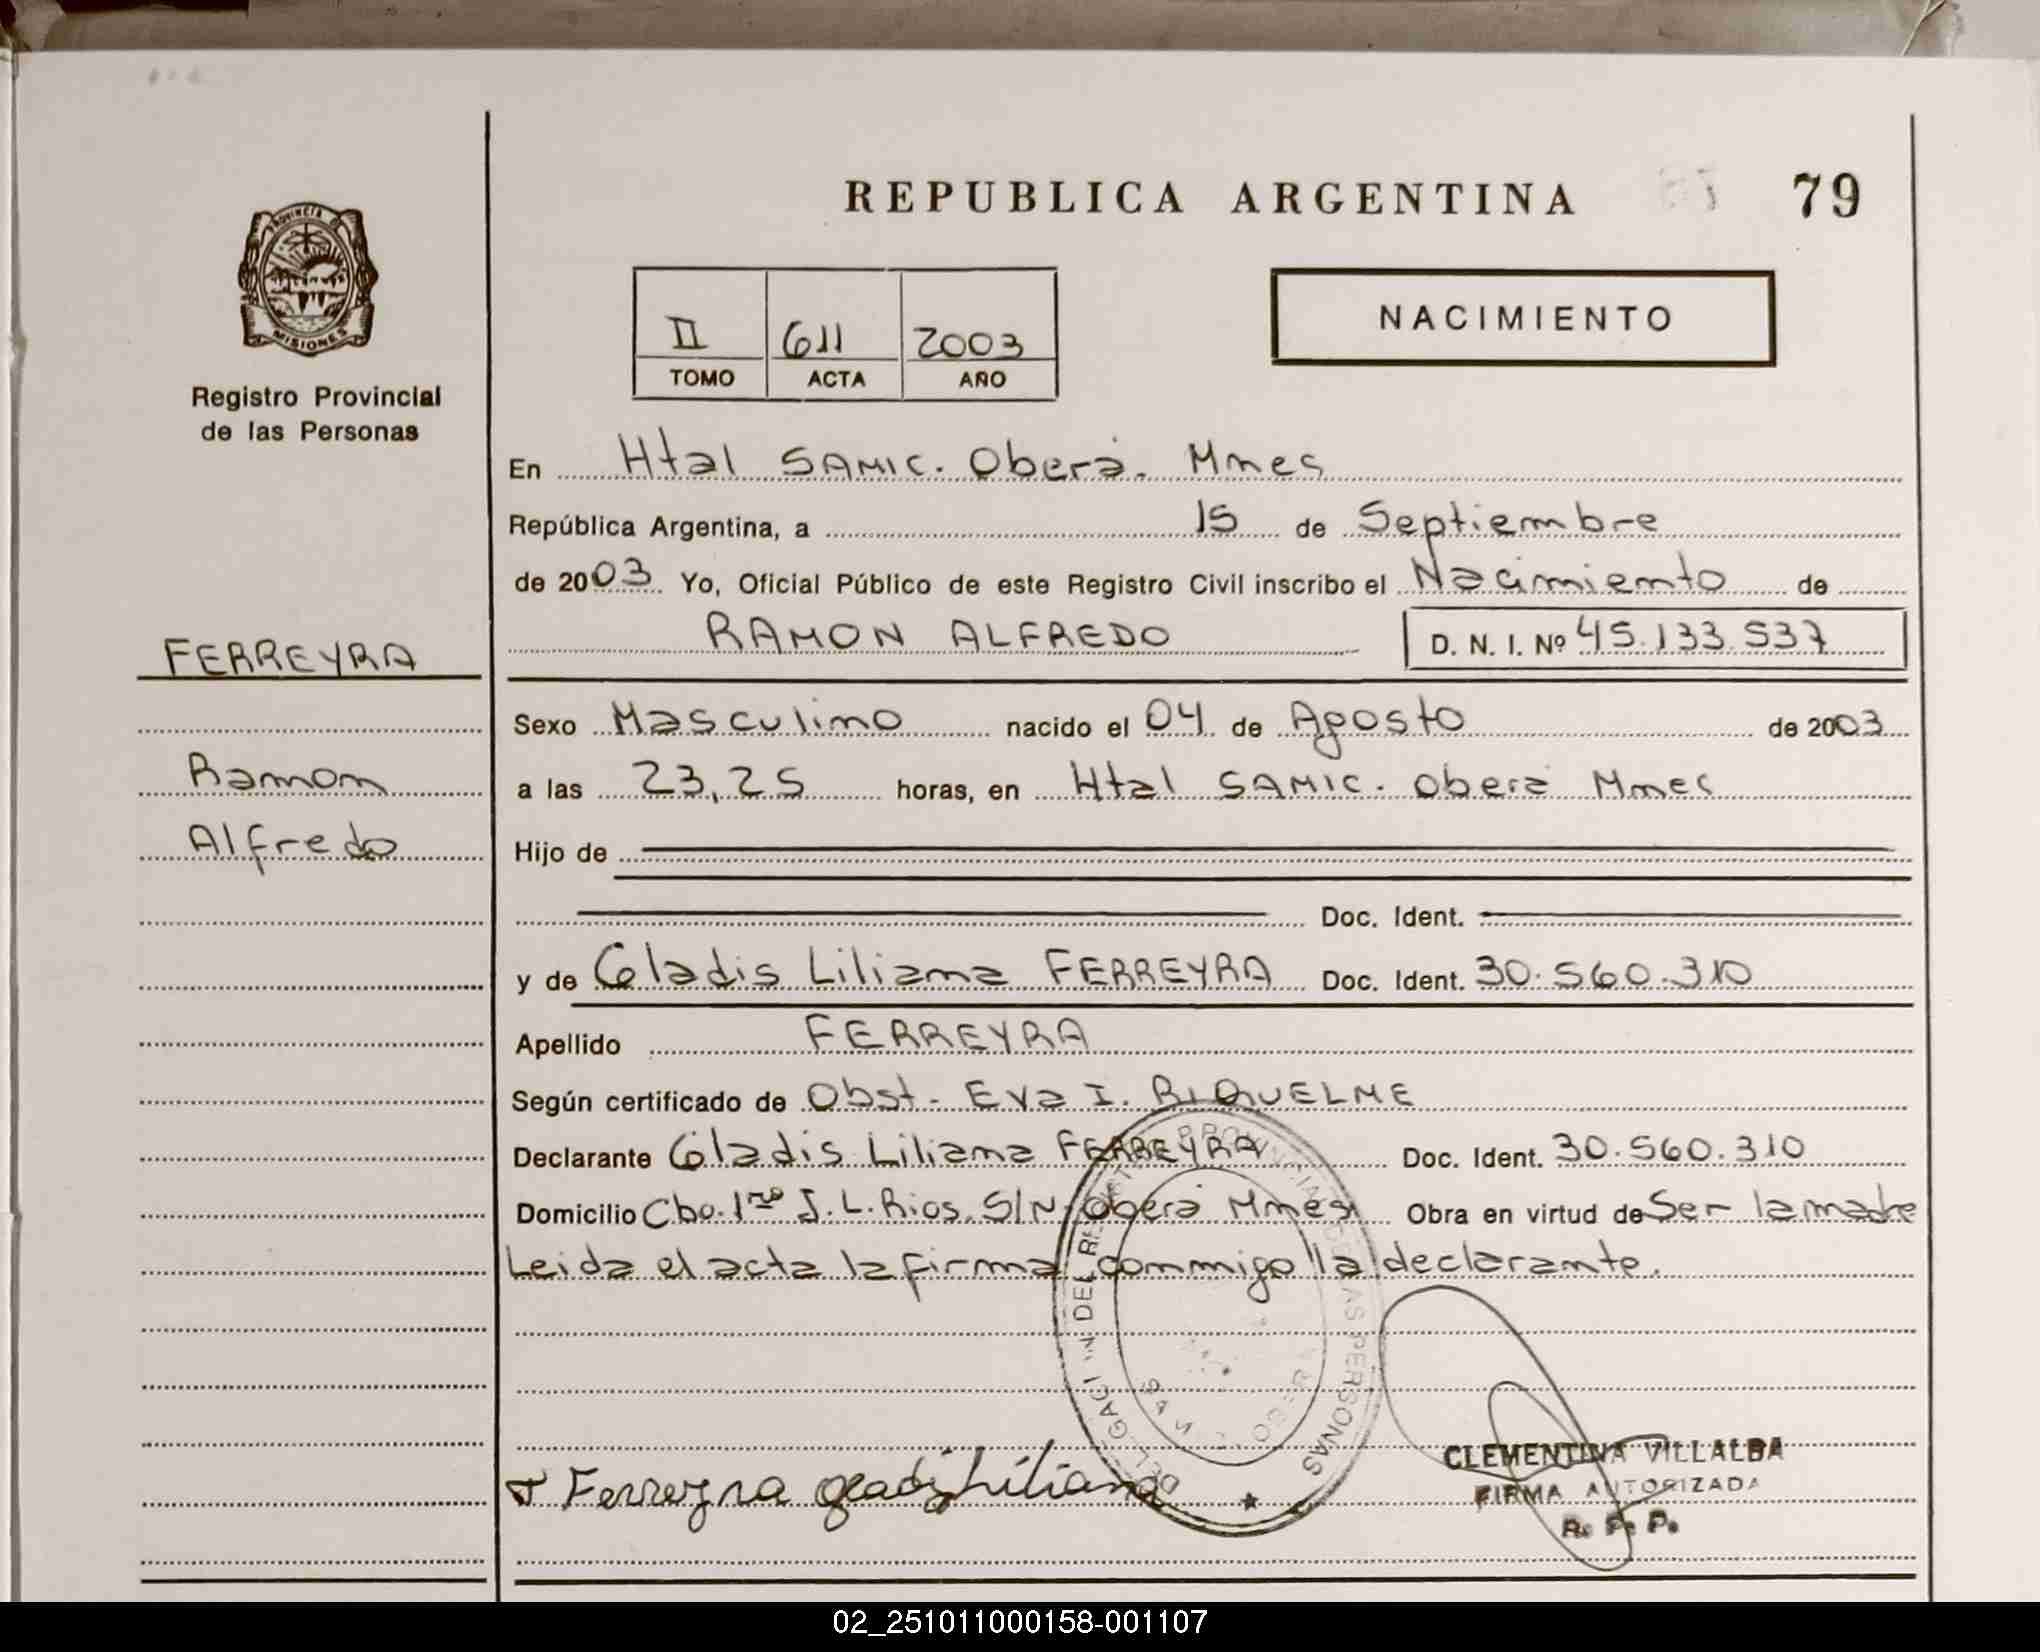 REPUBLICA ARGENTINA
79
PROVINCIA DE
MISIONES
Registro Provincial
de las Personas
II 611 2003
TOMO ACTA AÑO
NACIMIENTO
En Htal SAMIC. Oberá. Mnes
República Argentina, a 15 de Septiembre
de 2003 Yo, Oficial Público de este Registro Civil inscribo el Nacimiento de
RAMON ALFREDO D. N. I. Nº 45.133.537
FERREYRA
Ramon
Alfredo
Sexo Masculino nacido el 04 de Agosto de 2003
a las 23,25 horas, en Htal SAMIC. Oberá Mnes
Hijo de
Doc. Ident.
y de Gladis Liliana FERREYRA Doc. Ident. 30.560.310
Apellido FERREYRA
Según certificado de Obst. Eva I. RIQUELME
Declarante Gladis Liliana FERREYRA Doc. Ident. 30.560.310
Domicilio Cbo. 1ro J. L. Rios. S/N. Oberá Mnes Obra en virtud de Ser la madre
Leida el acta la firma conmigo la declarante.
PROVINCIAL DE LAS PERSONAS
Ferreyra gladis Liliana
CLEMENTINA VILLALBA
FIRMA AUTORIZADA
R. P. P.
02_251011000158-001107